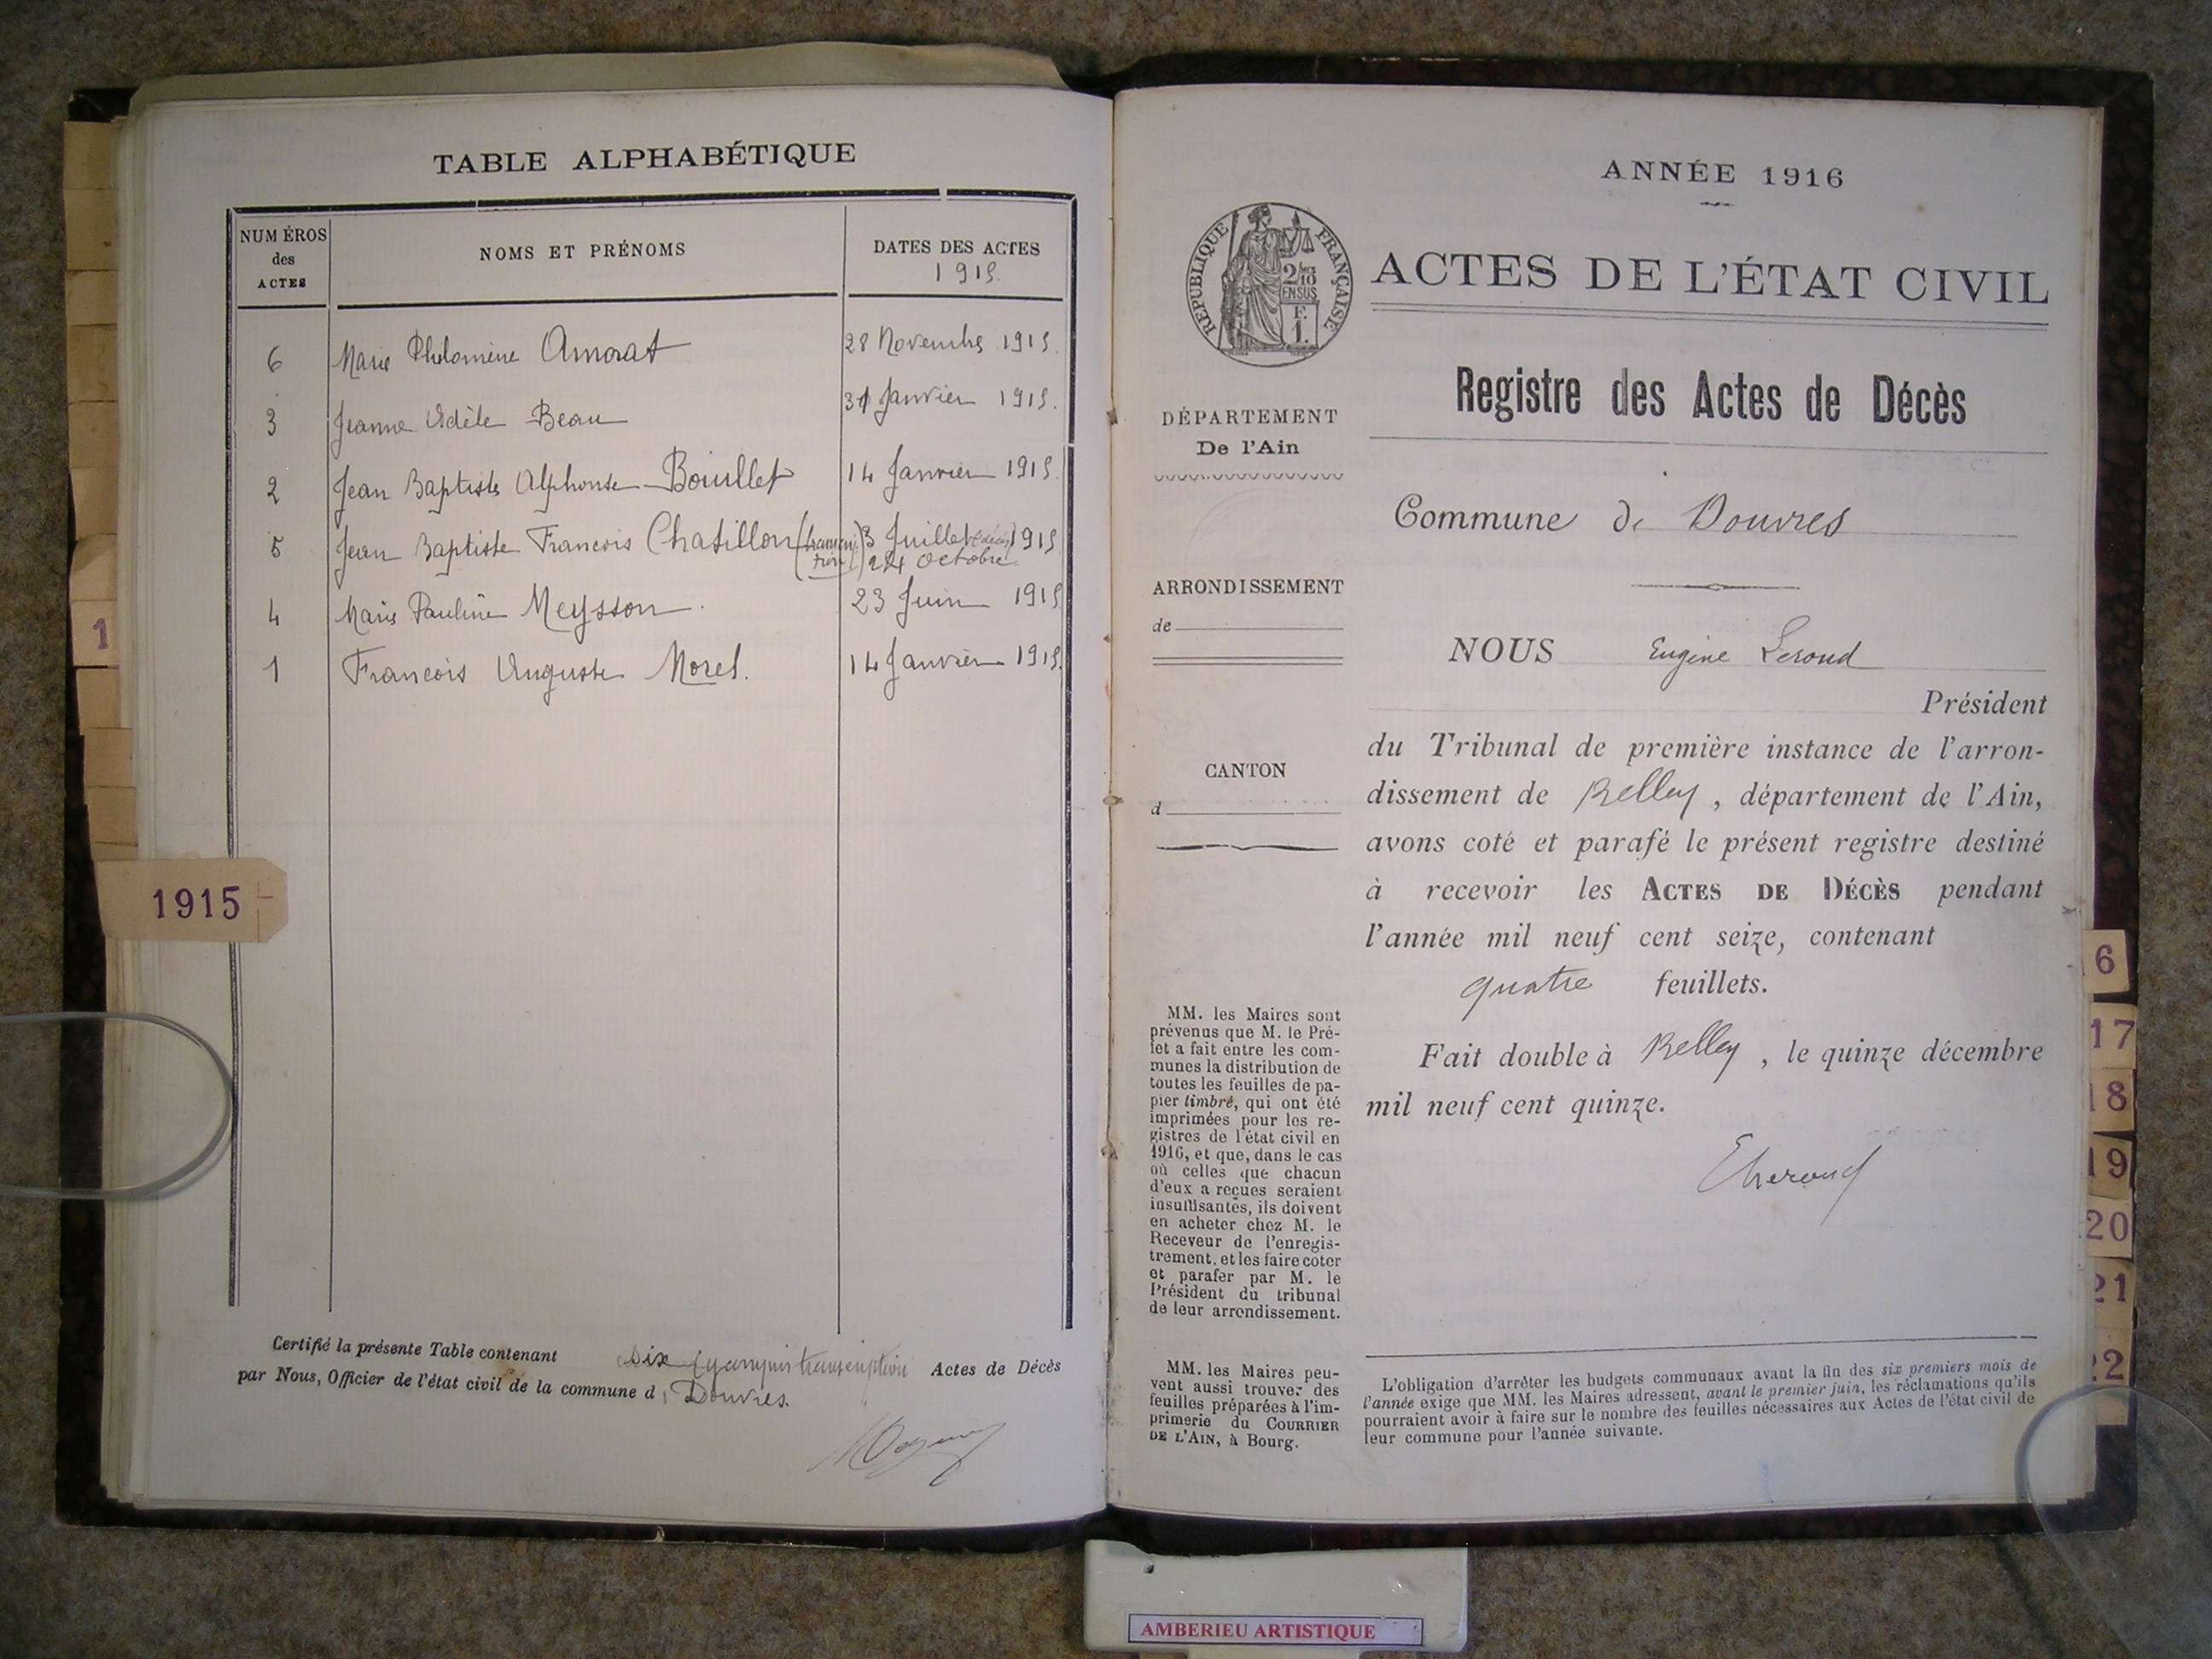 TABLE ALPHABÉTIQUE
NUMÉROS
des
ACTES
NOMS ET PRÉNOMS
DATES DES ACTES
1915.
6 Marie Philomène Amorat 28 Novembre 1915.
3 Jeanne Adèle Beau 31 Janvier 1915.
2 Jean Baptiste Alphonse Bouillet 14 Janvier 1915.
5 Jean Baptiste François Chatillon (transcription) 3 Juillet (décès) 1915
24 Octobre
4 Marie Pauline Meysson. 23 Juin 1915
1 François Auguste Morel. 14 Janvier 1915
1
1915
Certifié la présente Table contenant Six transcription Actes de Décès
par Nous, Officier de l'état civil de la commune d Douvres.
ANNÉE 1916
RÉPUBLIQUE FRANÇAISE
2/10
EN SUS
F.
1.
ACTES DE L'ÉTAT CIVIL
Registre des Actes de Décès
DÉPARTEMENT
De l'Ain
Commune de Douvres
ARRONDISSEMENT
de
CANTON
d
NOUS Eugène Leroud
Président
du Tribunal de première instance de l'arron-
dissement de Belley, département de l'Ain,
avons coté et parafé le présent registre destiné
à recevoir les ACTES DE DÉCÈS pendant
l'année mil neuf cent seize, contenant
quatre feuillets.
Fait double à Belley, le quinze décembre
mil neuf cent quinze.
MM. les Maires sont
prévenus que M. le Pré-
fet a fait entre les com-
munes la distribution de
toutes les feuilles de pa-
pier timbré, qui ont été
imprimées pour les re-
gistres de l'état civil en
1916, et que, dans le cas
où celles que chacun
d'eux a reçues seraient
insuffisantes, ils doivent
en acheter chez M. le
Receveur de l'enregis-
trement, et les faire coter
et parafer par M. le
Président du tribunal
de leur arrondissement.
MM. les Maires peu-
vent aussi trouver des
feuilles préparées à l'im-
primerie du COURRIER
DE L'AIN, à Bourg.
L'obligation d'arrêter les budgets communaux avant la fin des six premiers mois de
l'année exige que MM. les Maires adressent, avant le premier juin, les réclamations qu'ils
pourraient avoir à faire sur le nombre des feuilles nécessaires aux Actes de l'état civil de
leur commune pour l'année suivante.
6
17
18
19
20
21
22
AMBERIEU ARTISTIQUE